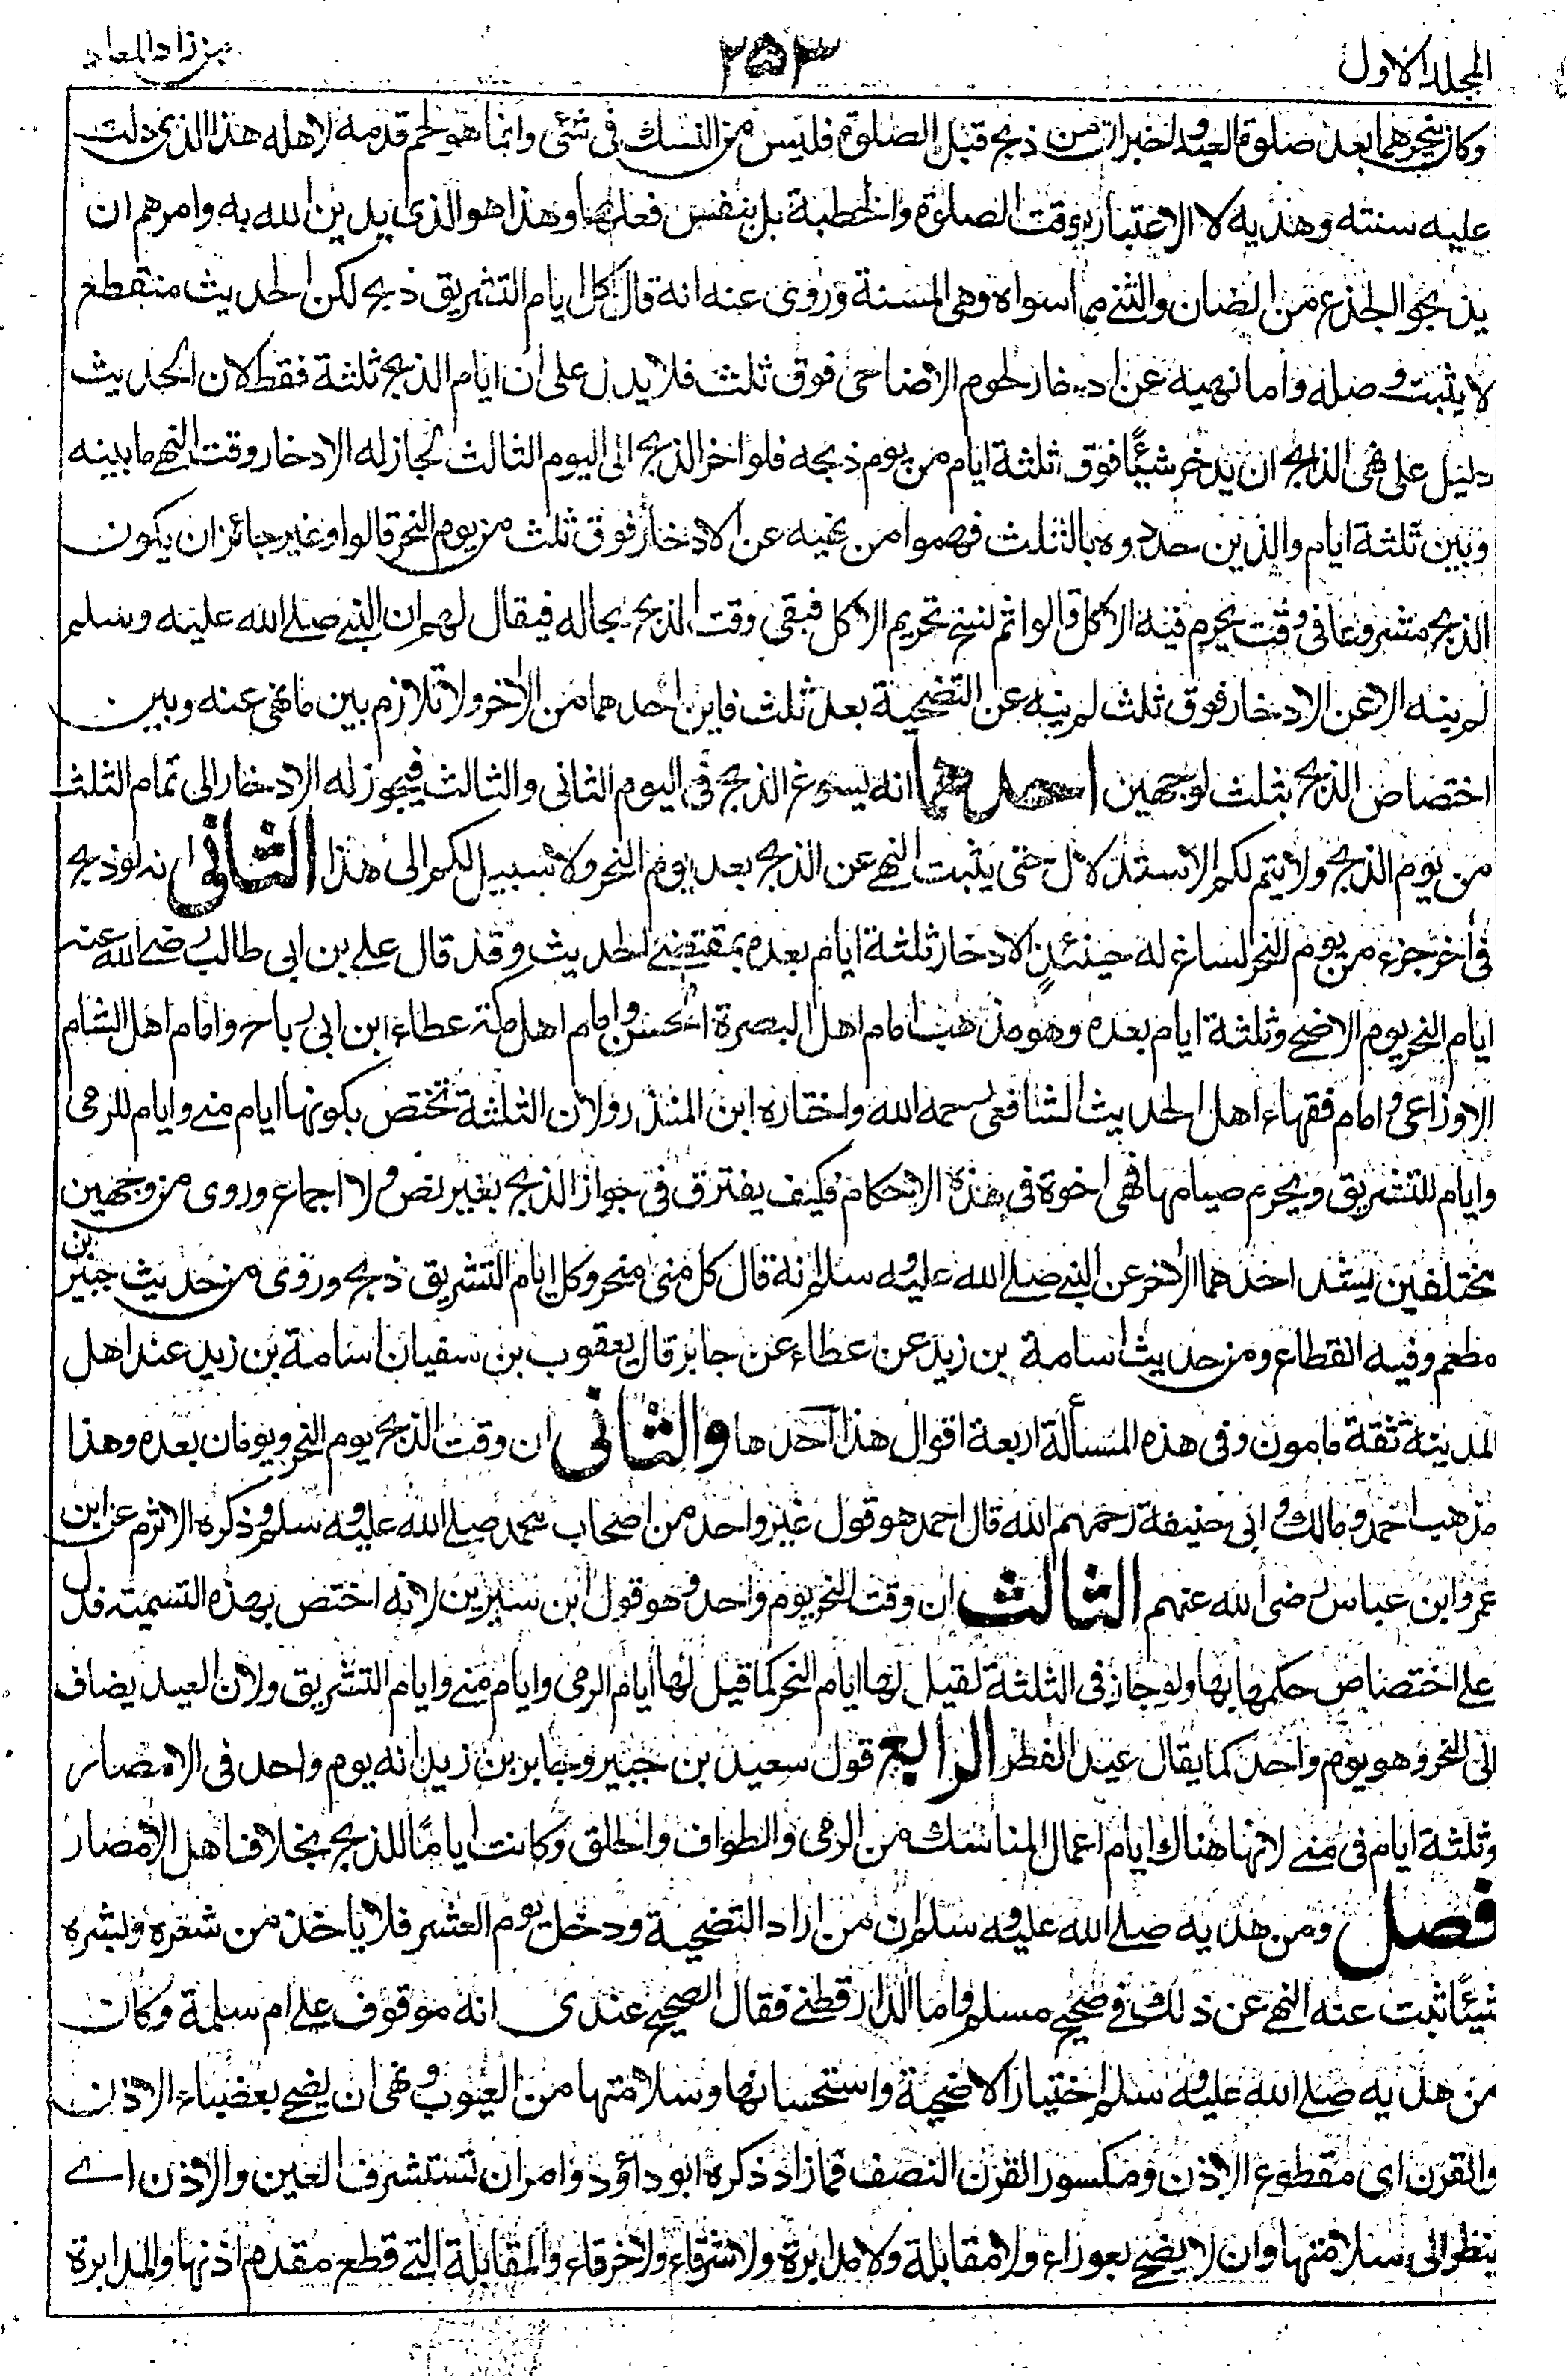 المجلد الاول
٢٥٣
من زاد المعاد
وكان ينحرهما بعد صلوة العيد واخبر ان من ذبح قبل الصلوة فليس من النسك فى شئ وانما هو لحم قدمه لاهله هذا الذى دلت
عليه سنته وهديه لا الاعتبار بوقت الصلوة والخطبة بل بنفس فعلها وهذا هو الذى يدين الله به وامرهم ان
يذبحوا الجذع من الضان والثنى مما سواه وهى المسنة وروى عنه انه قال كل ايام التشريق ذبح لكن الحديث منقطع
لا يثبت وصله واما نهيه عن ادخار لحوم الاضاحى فوق ثلث فلا يدل على ان ايام الذبح ثلثة فقط لان الحديث
دليل على نهى الذابح ان يدخر شيئًا فوق ثلثة ايام من يوم ذبحه فلو اخر الذبح الى اليوم الثالث لجاز له الادخار وقت النهى ما بينه
وبين ثلثة ايام والذين حددوه بالثلث فهموا من نهيه عن الادخار فوق ثلث من يوم النحر قالوا وغير جائز ان يكون
الذبح مشروعا فى وقت يحرم فيه الاكل قالوا ثم نسخ تحريم الاكل فبقى وقت الذبح بحاله فيقال لهم ان النبى صلى الله عليه وسلم
لم ينه الا عن الادخار فوق ثلث لم ينه عن التضحية بعد ثلث فاين احدهما من الاخر ولا تلازم بين ما نهى عنه وبين
اختصاص الذبح بثلث لوجهين احدهما انه يسوغ الذبح فى اليوم الثانى والثالث فيجوز له الادخار الى تمام الثلث
من يوم الذبح ولا يتم لكم الاستدلال حتى يثبت النهى عن الذبح بعد يوم النحر ولا سبيل لكم الى هذا الثانى انه لو ذبح
فى اخر جزء من يوم النحر لساغ له حينئذٍ الادخار ثلثة ايام بعده بمقتضى الحديث وقد قال على بن ابى طالب رضى الله عنه
ايام النحر يوم الاضحى وثلثة ايام بعده وهو مذهب امام اهل البصرة الحسن وامام اهل مكة عطاء ابن ابى رباح وامام اهل الشام
الاوزاعى وامام فقهاء اهل الحديث الشافعى رحمه الله واختاره ابن المنذر ولان الثلثة تختص بكونها ايام منى وايام للرمى
وايام للتشريق ويحرم صيامها فهى اخوة فى هذه الاحكام فكيف يفترق فى جواز الذبح بغير نص ولا اجماع وروى من وجهين
مختلفين يشد احدهما الاخر عن النبى صلى الله عليه وسلم انه قال كل منى منحر وكل ايام التشريق ذبح وروى من حديث جبير بن
مطعم وفيه انقطاع ومن حديث اسامة بن زيد عن عطاء عن جابر قال يعقوب بن سفيان اسامة بن زيد عند اهل
المدينة ثقة مامون وفى هذه المسألة اربعة اقوال هذا احدها والثانى ان وقت الذبح يوم النحر ويومان بعده وهذا
مذهب احمد ومالك وابى حنيفة رحمهم الله قال احمد هو قول غير واحد من اصحاب محمد صلى الله عليه وسلم وذكره الاثرم عن ابن
عمر وابن عباس رضى الله عنهم الثالث ان وقت النحر يوم واحد وهو قول ابن سيرين لانه اختص بهذه التسمية فدل
على اختصاص حكمها بها ولو جاز فى الثلثة لقيل لها ايام النحر كما قيل لها ايام الرمى وايام منى وايام التشريق ولان العيد يضاف
الى النحر وهو يوم واحد كما يقال عيد الفطر الرابع قول سعيد بن جبير وجابر بن زيد انه يوم واحد فى الامصار
وثلثة ايام فى منى لانها هناك ايام اعمال المناسك من الرمى والطواف والحلق وكانت ايامًا للذبح بخلاف اهل الامصار
فصل ومن هديه صلى الله عليه وسلم ان من اراد التضحية ودخل يوم العشر فلا ياخذ من شعره وبشره
شيئًا ثبت عنه النهى عن ذلك فى صحيح مسلم واما الدارقطنى فقال الصحيح عندى انه موقوف على ام سلمة وكان
من هديه صلى الله عليه وسلم اختيار الاضحية واستحسانها وسلامتها من العيوب ونهى ان يضحى بعضباء الاذن
والقرن اى مقطوع الاذن ومكسور القرن النصف فما زاد ذكره ابو داؤد وامر ان تستشرف العين والاذن اى
ينظر الى سلامتها وان لا يضحى بعوراء ولا مقابلة ولا مدابرة ولا شرقاء ولا خرقاء والمقابلة التى قطع مقدم اذنها والمدابرة